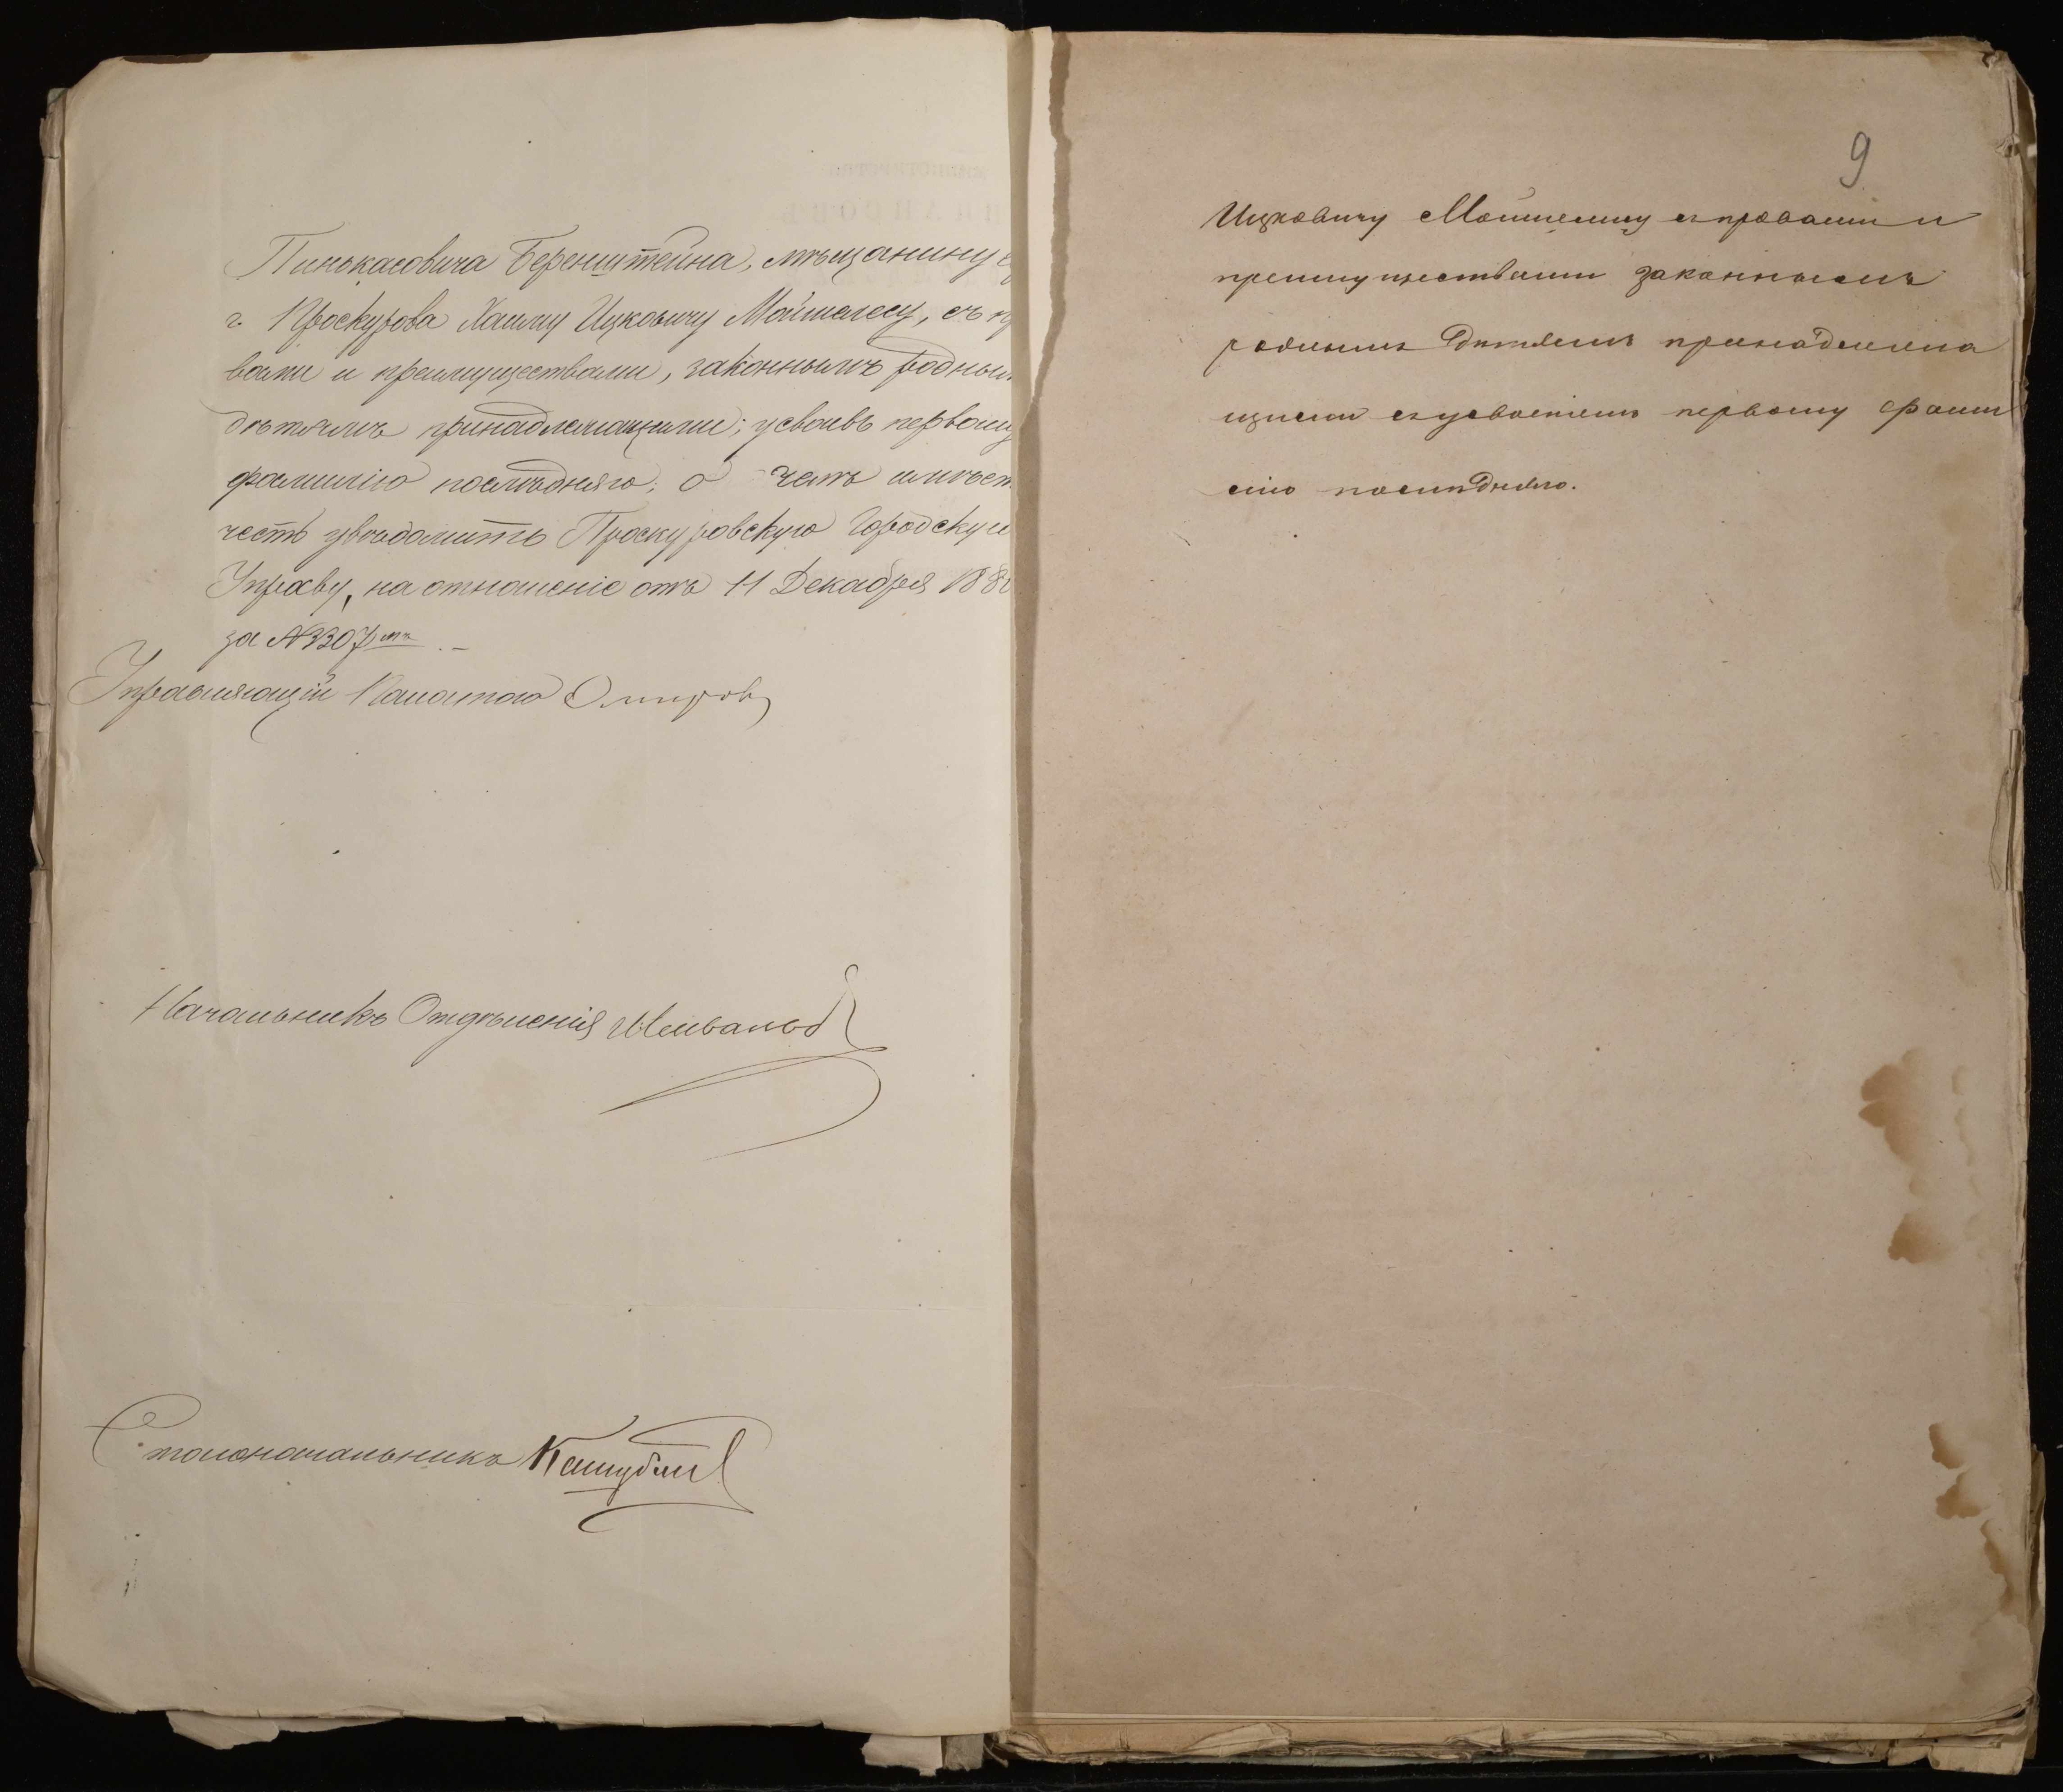 Пинькасовича Беренштейна, мѣщанину
г. Проскурова Хаиму Ицковичу Мойшелесу, съ пр
вами и преимуществами, законнымъ роднын
дѣтямъ принадлежащими; усвоивъ первому
фамилію послѣдняго; о чемъ имѣет
честь увѣдомить Проскуровскую Городскую
Управу, на отношеніе отъ 11 Декабря 188
за №3307мъ. –
Управляющій Палатою
Начальникъ Отдѣленія
Столоначальникъ
9
Ицковичу Мойшелису съ правами и
преимуществами законнымъ
роднымъ дѣтямъ принадлежа
щими съ усвоеніемъ первому фами
лію послѣдняго.